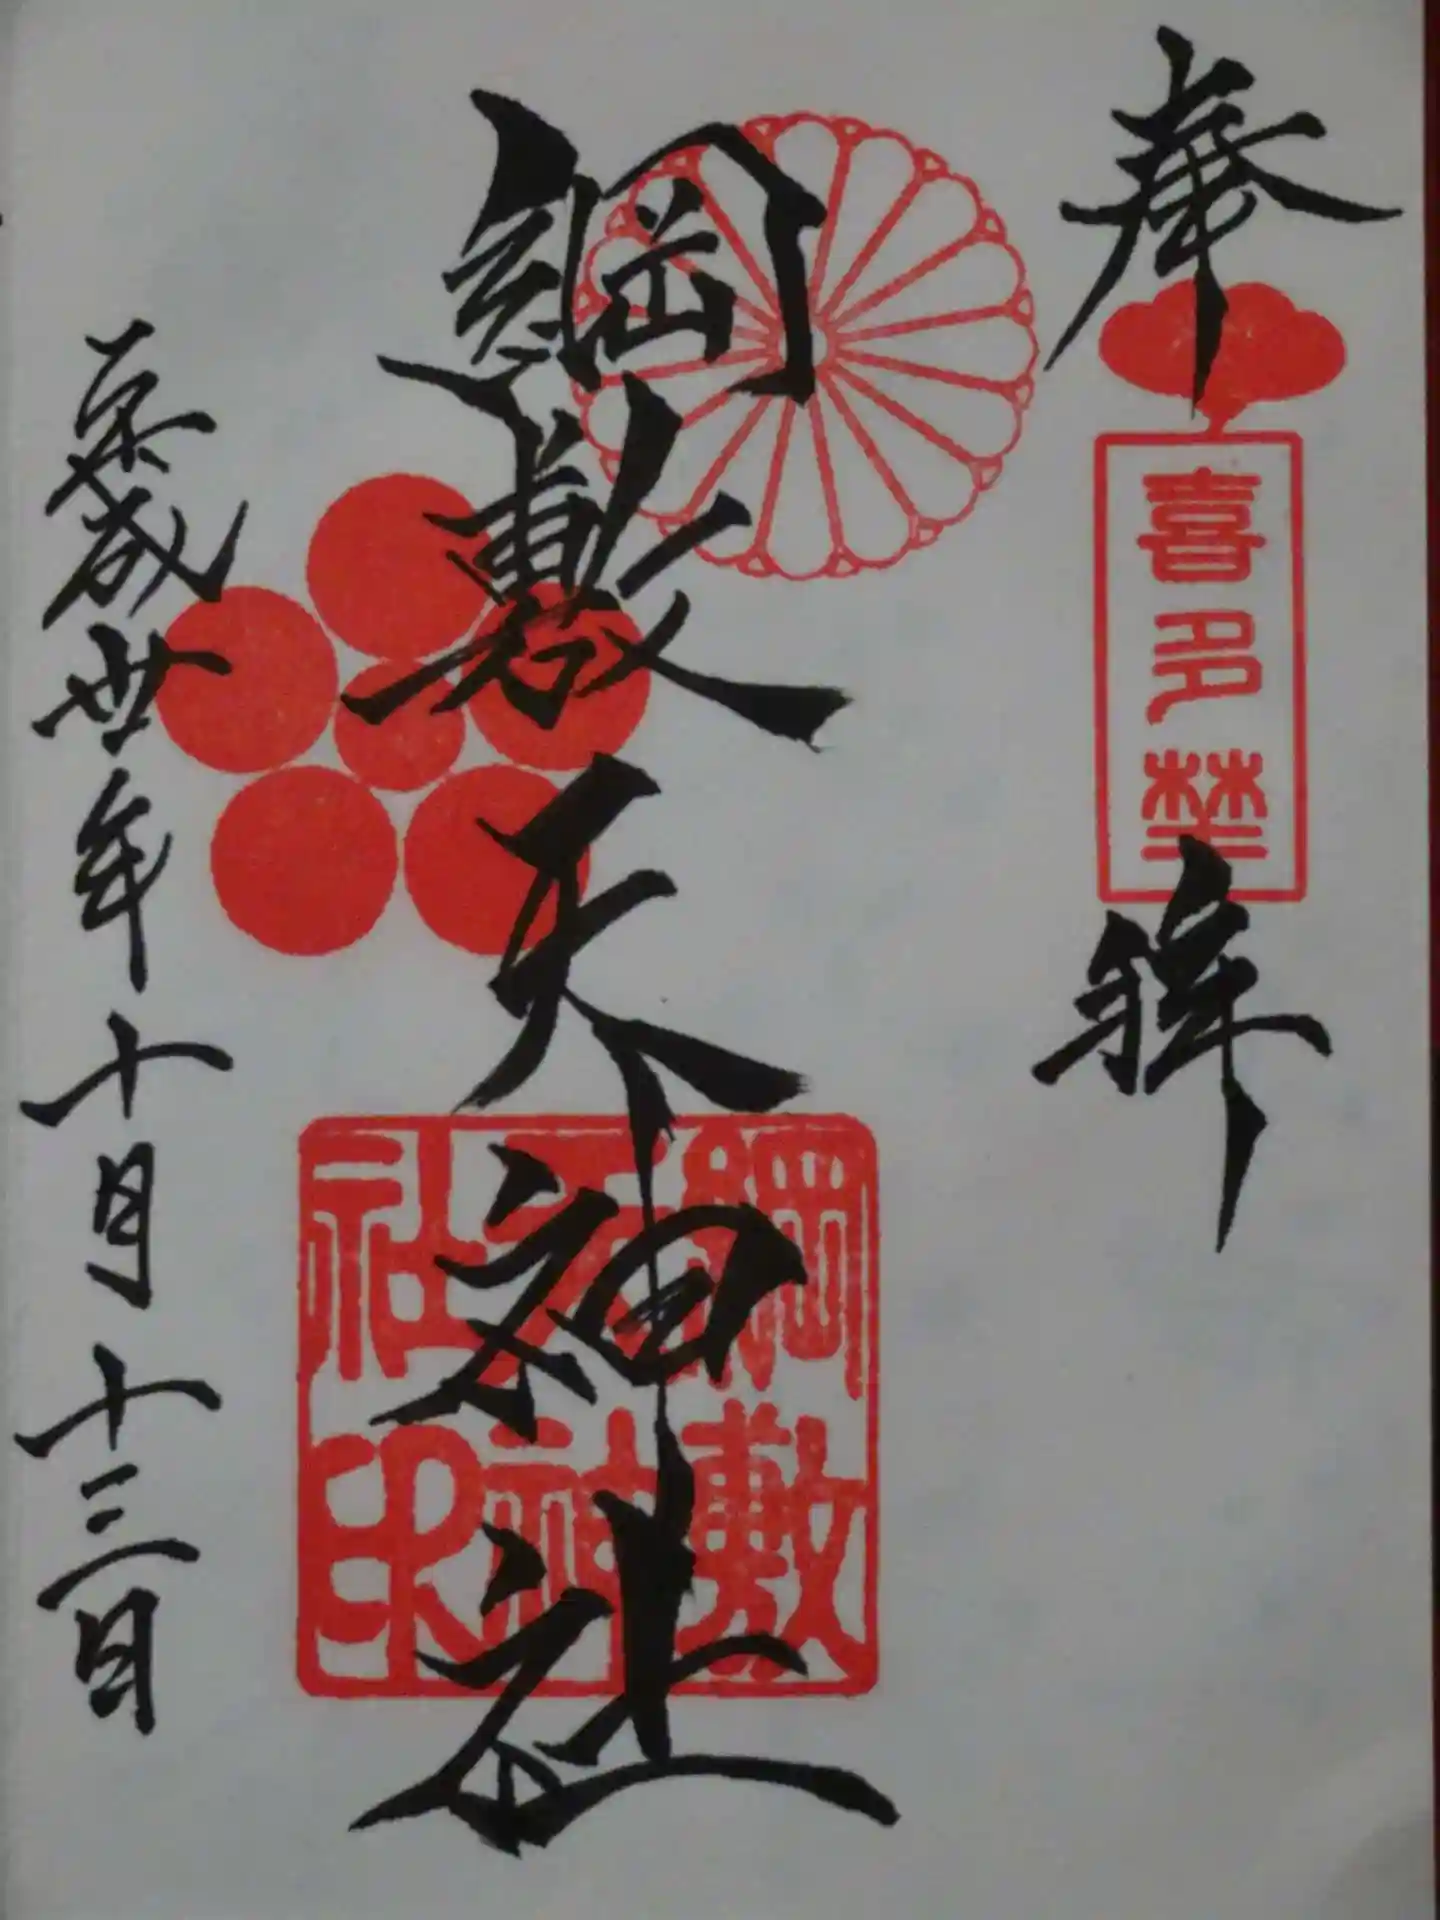 奉拜
喜多埜
綱敷天神社
綱敷
天神
社印
平成丗年十月十三日